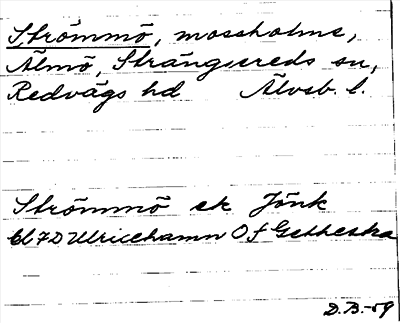 Strömmö, mossholme,
Älmö, Strängsereds sn,
Redvägs hd Älvsb. l.
Strömmö ek Jönk
bl 7D Ulricehamn Of Getheska
D.B.-59